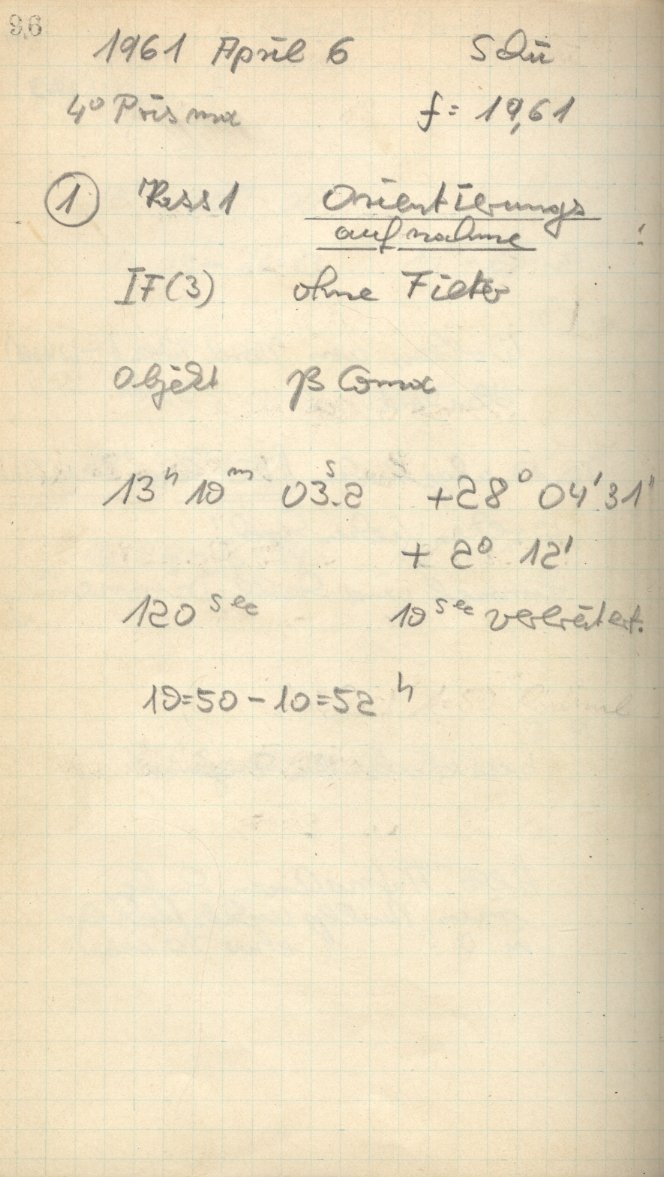 96
1961 April 6 Schü
4° Prisma f = 19,61
① Kass 1 Orientierungs
aufnahme
IF(3) ohne Filter
Objekt β Coma
13ʰ 10ᵐ 03ˢ.2 +28° 04' 31"
+ 2° 12'
120 sec 10 sec verbreitert.
10=50 - 10=52 ʰ